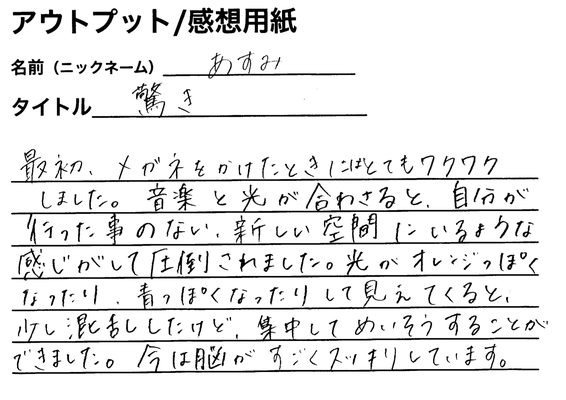 アウトプット/感想用紙
名前（ニックネーム） あすみ
タイトル 驚き
最初、メガネをかけたときにはとてもワクワク
しました。音楽と光が合わさると、自分が
行った事のない、新しい空間にいるような
感じがして圧倒されました。光がオレンジっぽく
なったり、青っぽくなったりして見えてくると、
少し混乱ししたけど、集中してめいそうすることが
できました。今は脳がすごくスッキリしています。